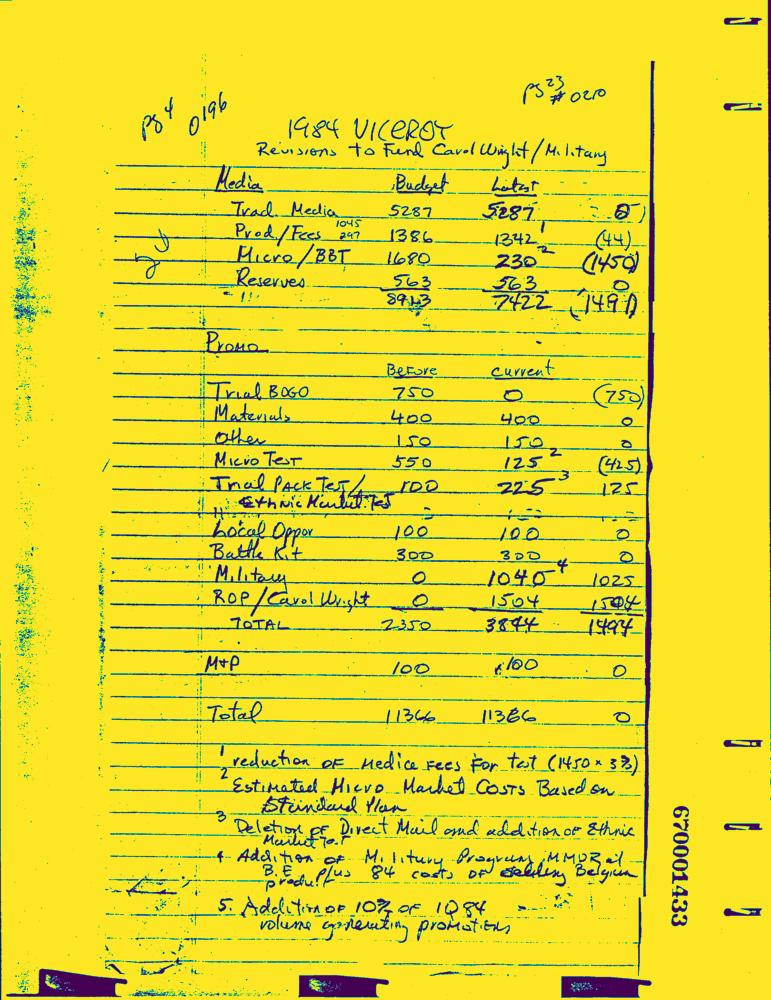 pg 4 0196
pg 23 # 0210
1984 VICEROY
Revisions to Fund Carol Wright/Military
Media Budget Latest
Trad. Media 5287 5287 0
Prod/Fees 1045 297 1386 1342 1 (44)
Micro/BBT 1680 230 2 (1450)
Reserves 563 563 0
7422
Promo
Before Current
Trial BOGO 750 0 (750)
Materials 400 400 0
Other 150 150 0
Micro Test 550 125 2 (425)
Trial Pack Test/ 100 225 3 125
Ethnic Market Test
Local Oppor 100 100 0
Battle Kit 300 300 0
Military 0 4 1025
ROP/Carol Wright 0 1504
TOTAL 2350
M+P 100 100 0
Total 11366 0
1 reduction of Media Fees For test (1450 x 3%)
2 Estimated Micro Market Costs Based on
Standard Plan
3 Deletion of Direct Mail and addition of Ethnic
Market Test
4. Addition of Military Program,
B.E. Plus 84 costs of Belgium
product
5. Addition of 10% of 1984
volume generating promotions
670001433